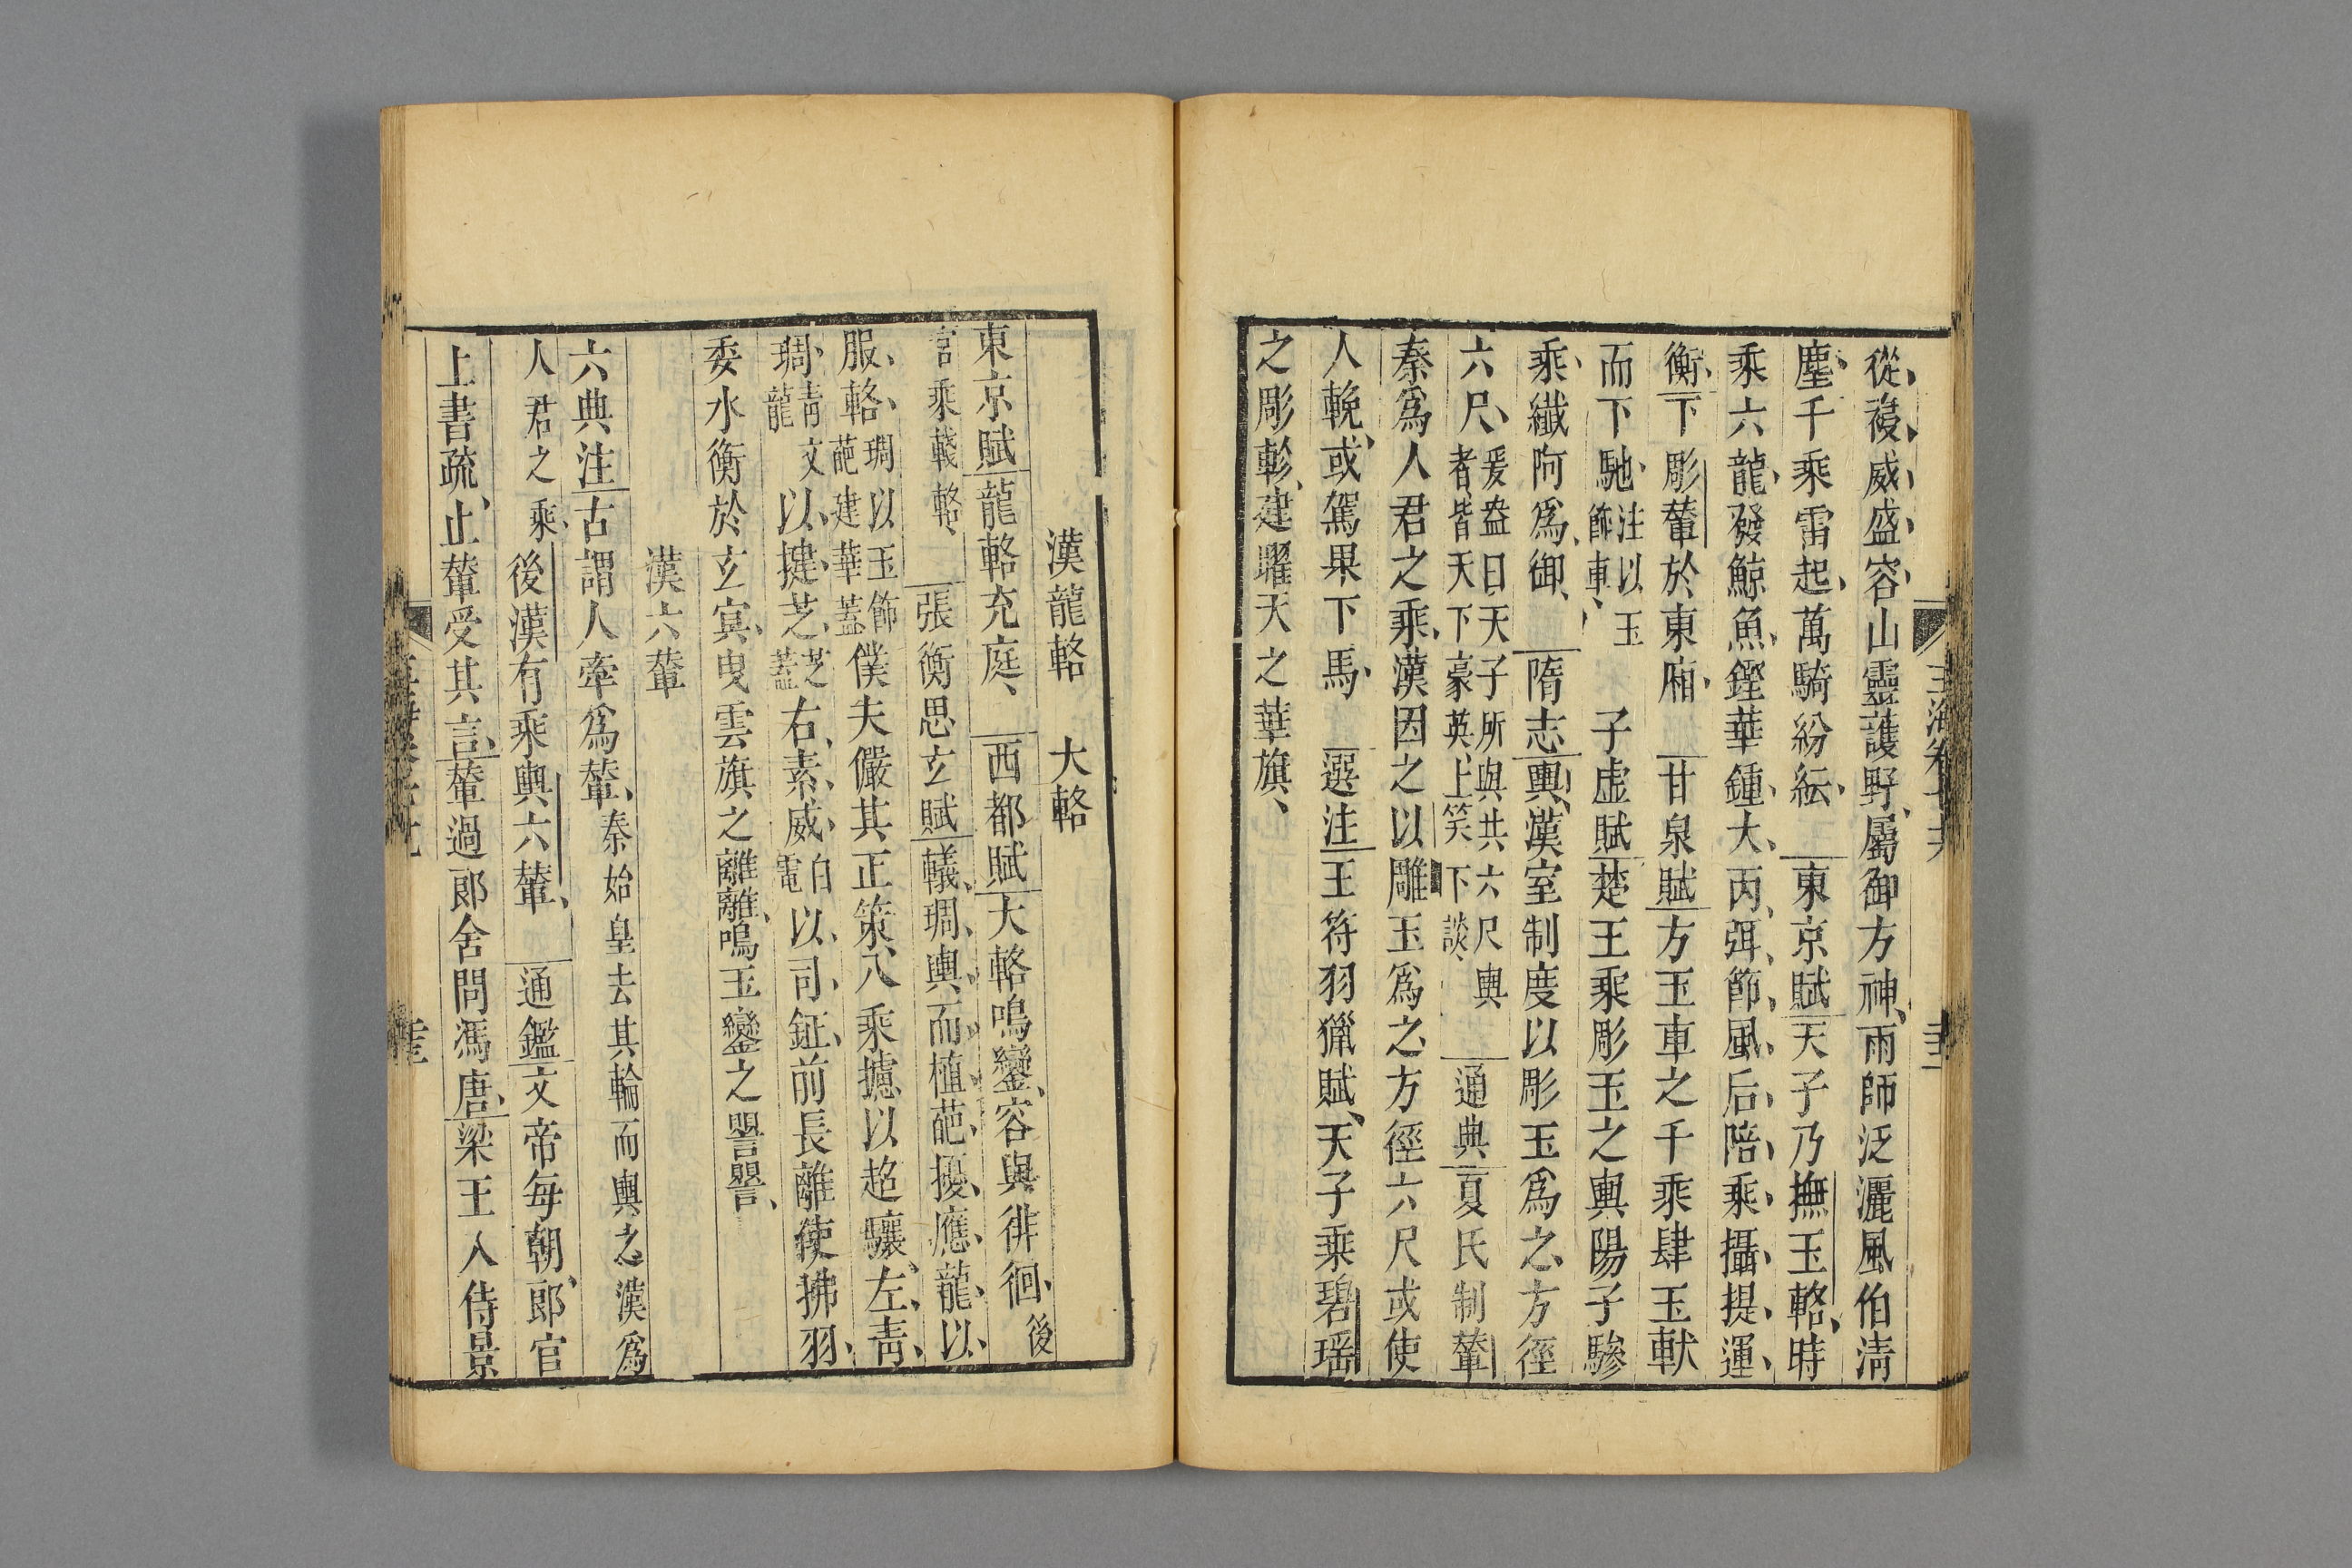 從後威盛容山靈護野屬御方神雨師泛灑風伯清
塵千乘雷起萬騎紛紜東京賦天子乃撫玉輅時
乘六龍發鯨魚鏗華鍾大丙弭節風后陪乘攝提運
衡下彫輦於東廂甘泉賦方玉車之千乘肆玉軑
而下馳注以玉飾車子虛賦楚王乘彫玉之輿陽子驂
乘纖阿爲御隋志輿漢室制度以彫玉爲之方徑
六尺爰盎曰天子所與共六尺輿者皆天下豪英上笑下談通典夏氏制輦
秦爲人君之乘漢因之以雕玉爲之方徑六尺或使
人輓或駕果下馬選注王符羽獵賦天子乘碧瑶
之彫軫建曜天之華旗
玉海卷七十八
漢龍輅 大輅
東京賦龍輅充庭西都賦大輅鳴鑾容與徘徊後
宮乘輚輅張衡思玄賦轙琱輿而植葩擾應龍以
服輅琱以玉飾葩建華蓋僕夫儼其正策八乘攄以超驤左靑
琱靑文龍以揵芝芝蓋右素威白電以司鉦前長離使拂羽
委水衡於玄㝠曳雲旗之離離鳴玉鑾之譻譻
漢六輦
六典注古謂人牽爲輦秦始皇去其輪而輿之漢爲
人君之乘後漢有乘輿六輦通鑑文帝每朝郎官
上書疏止輦受其言輦過郎舍問馮唐梁王入侍景